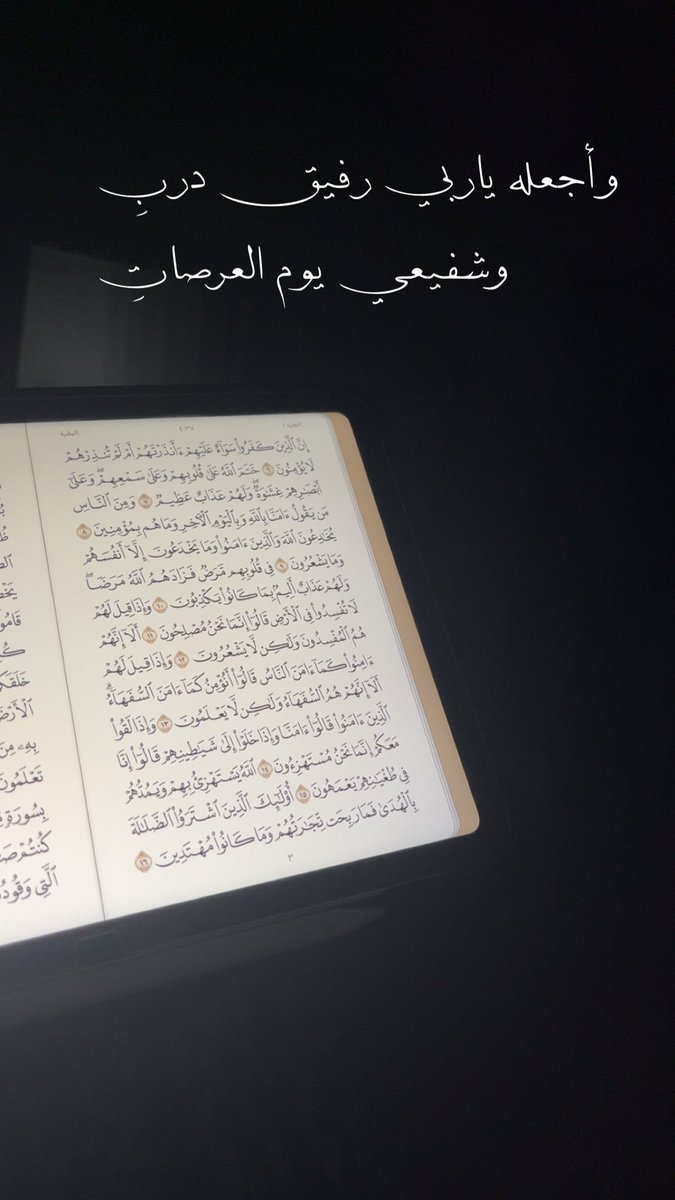 وأجعله ياربي رفيق دربِ
وشفيعي يوم العرصاتِ
الجزء ١
٤:٣٧
البقرة
إِنَّ ٱلَّذِينَ كَفَرُوا۟ سَوَآءٌ عَلَيْهِمْ ءَأَنذَرْتَهُمْ أَمْ لَمْ تُنذِرْهُمْ
لَا يُؤْمِنُونَ ٦ خَتَمَ ٱللَّهُ عَلَىٰ قُلُوبِهِمْ وَعَلَىٰ سَمْعِهِمْ ۖ وَعَلَىٰٓ
أَبْصَٰرِهِمْ غِشَٰوَةٌ ۖ وَلَهُمْ عَذَابٌ عَظِيمٌ ٧ وَمِنَ ٱلنَّاسِ
مَن يَقُولُ ءَامَنَّا بِٱللَّهِ وَبِٱلْيَوْمِ ٱلْـَٔاخِرِ وَمَا هُم بِمُؤْمِنِينَ ٨
يُخَٰدِعُونَ ٱللَّهَ وَٱلَّذِينَ ءَامَنُوا۟ وَمَا يَخْدَعُونَ إِلَّآ أَنفُسَهُمْ
وَمَا يَشْعُرُونَ ٩ فِى قُلُوبِهِم مَّرَضٌ فَزَادَهُمُ ٱللَّهُ مَرَضًا ۖ
وَلَهُمْ عَذَابٌ أَلِيمٌۢ بِمَا كَانُوا۟ يَكْذِبُونَ ١٠ وَإِذَا قِيلَ لَهُمْ
لَا تُفْسِدُوا۟ فِى ٱلْأَرْضِ قَالُوٓا۟ إِنَّمَا نَحْنُ مُصْلِحُونَ ١١ أَلَآ إِنَّهُمْ
هُمُ ٱلْمُفْسِدُونَ وَلَٰكِن لَّا يَشْعُرُونَ ١٢ وَإِذَا قِيلَ لَهُمْ
ءَامِنُوا۟ كَمَآ ءَامَنَ ٱلنَّاسُ قَالُوٓا۟ أَنُؤْمِنُ كَمَآ ءَامَنَ ٱلسُّفَهَآءُ ۗ
أَلَآ إِنَّهُمْ هُمُ ٱلسُّفَهَآءُ وَلَٰكِن لَّا يَعْلَمُونَ ١٣ وَإِذَا لَقُوا۟
ٱلَّذِينَ ءَامَنُوا۟ قَالُوٓا۟ ءَامَنَّا وَإِذَا خَلَوْا۟ إِلَىٰ شَيَٰطِينِهِمْ قَالُوٓا۟ إِنَّا
مَعَكُمْ إِنَّمَا نَحْنُ مُسْتَهْزِءُونَ ١٤ ٱللَّهُ يَسْتَهْزِئُ بِهِمْ وَيَمُدُّهُمْ
فِى طُغْيَٰنِهِمْ يَعْمَهُونَ ١٥ أُو۟لَٰٓئِكَ ٱلَّذِينَ ٱشْتَرَوُا۟ ٱلضَّلَٰلَةَ
بِٱلْهُدَىٰ فَمَا رَبِحَت تِّجَٰرَتُهُمْ وَمَا كَانُوا۟ مُهْتَدِينَ ١٦
٣
خَلَقَكُمْ
ٱلْأَرْضَ
بِهِۦ مِنَ
تَعْلَمُونَ
بِسُورَةٍ
كُنتُمْ صَٰ
ٱلَّتِى وَقُودُ